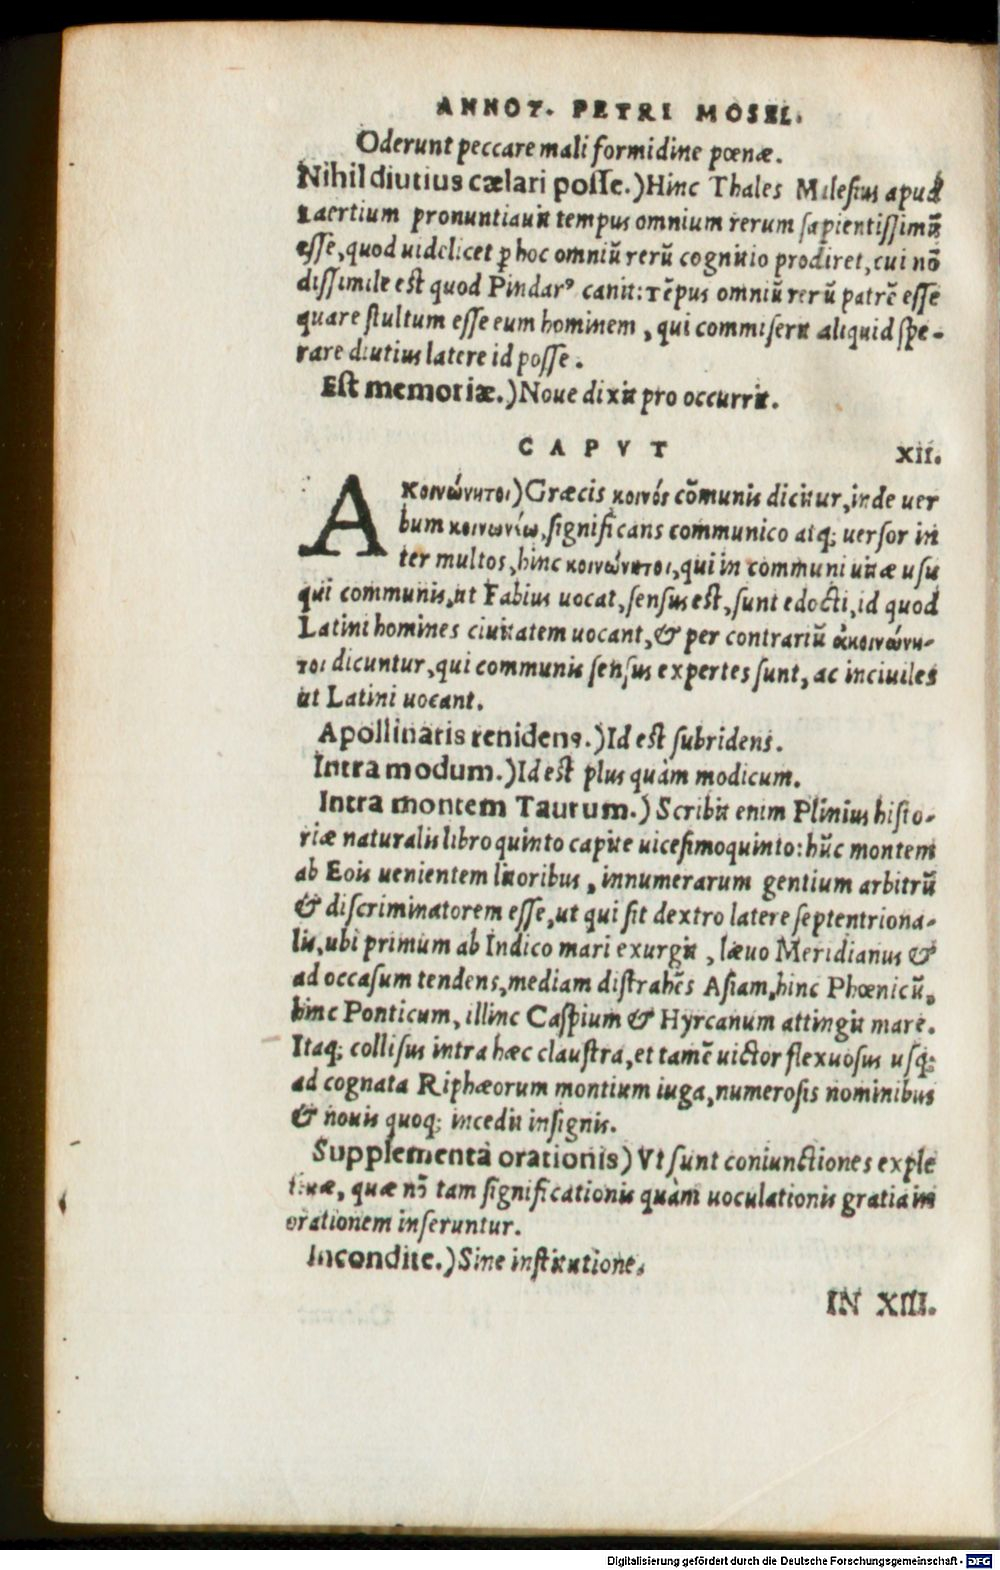 ANNOT. PETRI MOSEL.
Oderunt peccare mali formidine pœnæ.
Nihil diutius cælari posse.) Hinc Thales Milesius apud
Laertium pronuntiauit tempus omnium rerum sapientissimũ
esse, quod uidelicet ꝑ hoc omniũ rerũ cognitio prodiret, cui nõ
dissimile est quod Pindarꝰ canit: Tẽpus omniũ rerũ patrẽ esse
quare stultum esse eum hominem, qui commiserit aliquid spe-
rare diutius latere id posse.
Est memoriæ.) Noue dixit pro occurrit.
CAPVT XII.
Ακοινώνητοι) Græcis κοινός cõmunis dicitur, inde uer
bum κοινωνέω, significans communico atq; uersor in
ter multos, hinc κοινώνητοι, qui in communi uitæ usu
qui communis, ut Fabius uocat, sensus est, sunt edocti, id quod
Latini homines ciuitatem uocant, & per contrariũ ἀκοινώνη-
τοι dicuntur, qui communis sensus expertes sunt, ac inciuiles
ut Latini uocant.
Apollinaris renidens.) Id est subridens.
Intra modum.) Id est plus quàm modicum.
Intra montem Taurum.) Scribit enim Plinius histo-
riæ naturalis libro quinto capite uicesimoquinto: hũc montem
ab Eois uenientem litoribus, innumerarum gentium arbitrũ
& discriminatorem esse, ut qui sit dextro latere septentriona-
lis, ubi primum ab Indico mari exurgit, læuo Meridianus &
ad occasum tendens, mediam distrahẽs Asiam, hinc Phœnicũ,
hinc Ponticum, illinc Caspium & Hyrcanum attingit mare.
Itaq; collisus intra hæc claustra, et tamẽ uictor flexuosus usq;
ad cognata Riphæorum montium iuga, numerosis nominibus
& nouis quoq; incedit insignis.
Supplementa orationis) Vt sunt coniunctiones exple
tiuæ, quæ nõ tam significationis quàm uoculationis gratia in
orationem inseruntur.
Incondite.) Sine institutione.
IN XIII.
Digitalisierung gefördert durch die Deutsche Forschungsgemeinschaft - DFG